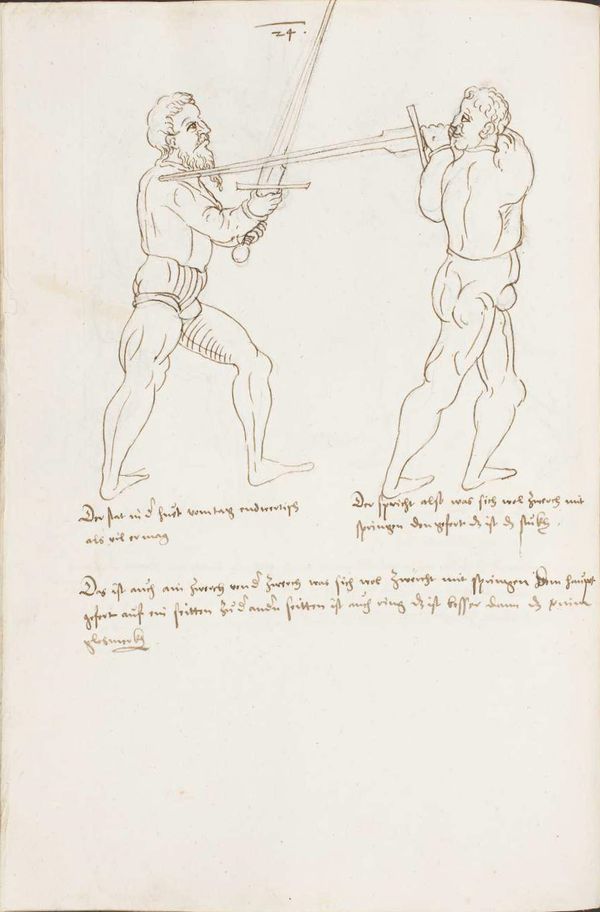 24.
Der stat in d' huot vom tag endwertisch
als vil er mag
Der spricht alst was sich wol zwerch mit
springen den gefert ds ist ds stuckh
Das ist auch ain zwerch von d' zwerch was sich wol zwercht mit springen Dem haupt
gefert auf ein seitten zu d' andern seitten ist auch ring ds ist besser dann ds